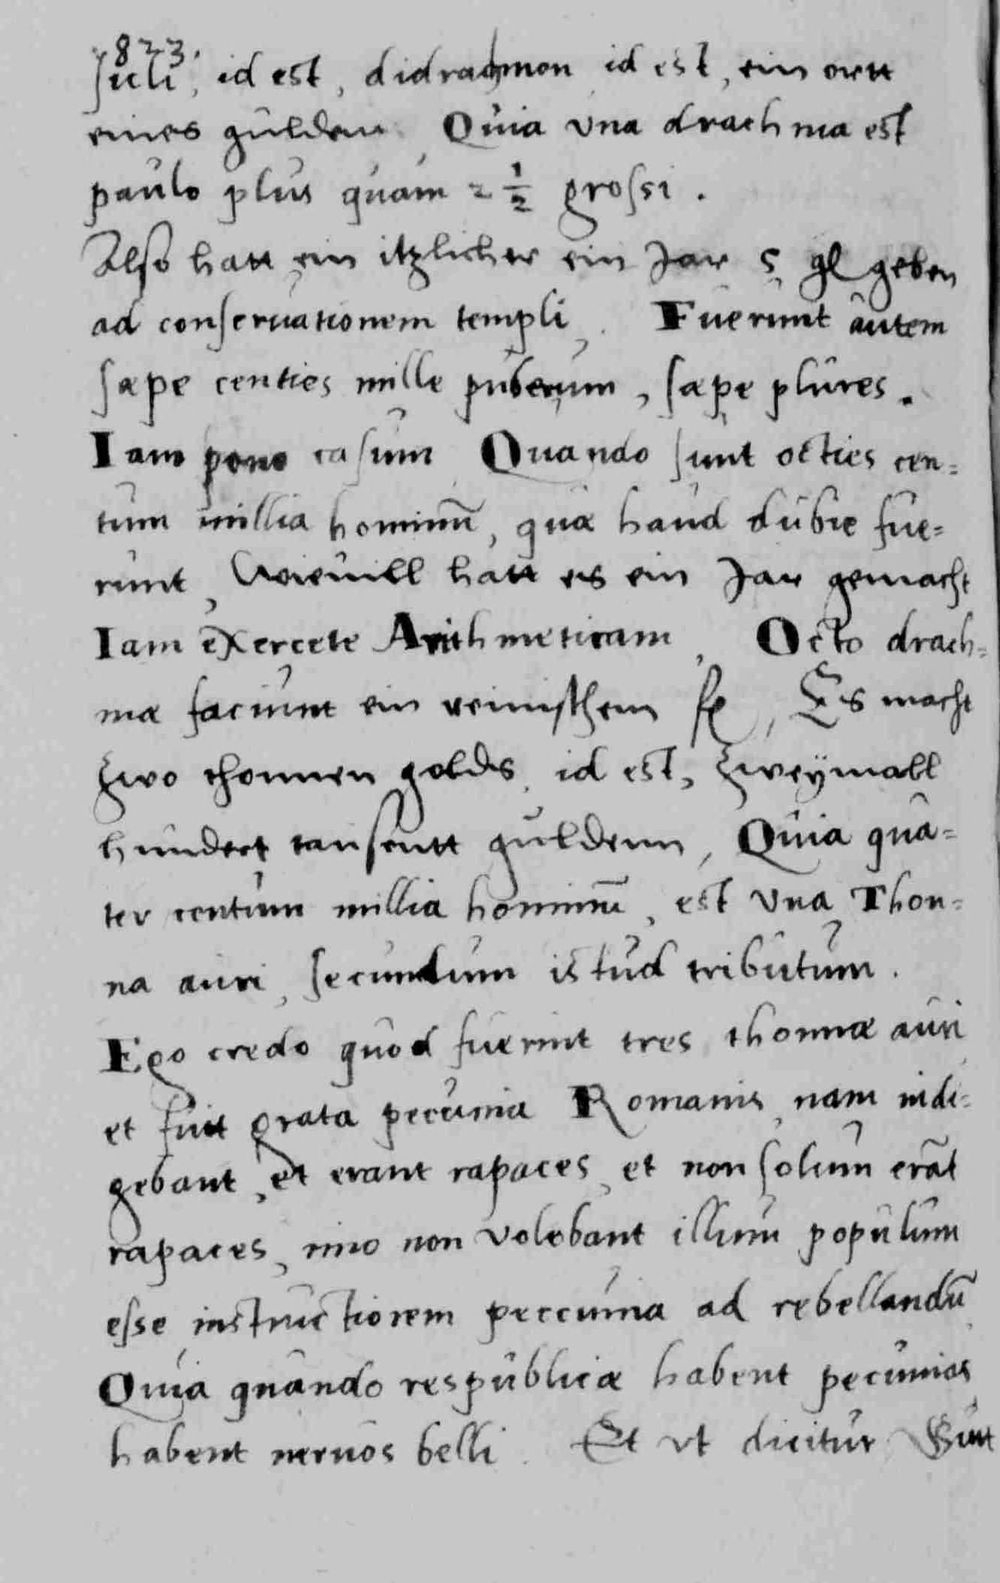 823.
sicli, id est, didrachmon id est, ein ortt
eines gulden. Quia una drachma est
paulo plus quam 2 1/2 grossi.
Also hatt ein itzlicher ein Jar 5 gl geben
ad conseruationem templi. Fuerunt autem
sæpe centies mille puberum, sæpe plures.
Iam pono casum Quando sunt octies cen=
tum millia hominū, quæ haud dubie fue=
runt, Wieuill hatt es ein Jar gemacht
Iam exercete Arithmeticam, Octo drach=
mæ faciunt ein reinischem fl, Es macht
zwo thonnen golds, id est, zweymall
hundert tausentt guldenn, Quia qua=
ter centum millia hominū, est una Thon=
na auri, secundum istud tributum.
Ego credo quod fuerint tres thonnæ auri
et fuit grata pecunia Romanis, nam indi=
gebant, et erant rapaces, et non solum erāt
rapaces, imo non volebant illum populum
esse instructiorem peccunia ad rebellandū
Quia quando respublicæ habent pecunias
habent neruos belli. Et ut dicitur Sunt